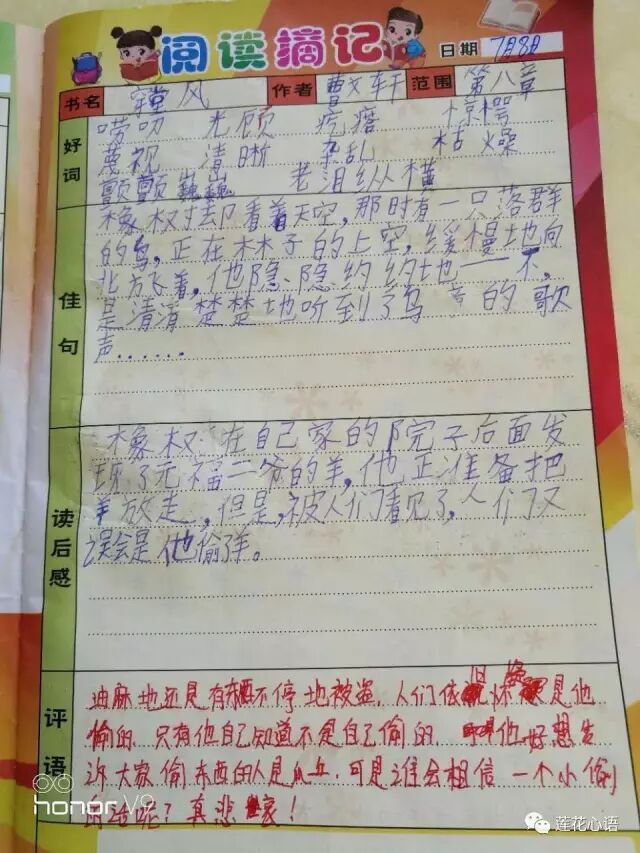 阅读摘记 日期 7月8日
书名 穿堂风 作者 曹文轩 范围 第八章
好词
唠叨 光顾 疙瘩 惊愕
蔑视 清晰 杂乱 枯燥
颤颤巍巍 老泪纵横
佳句
橡权却看着天空,那时有一只落群
的鸟,正在林子的上空,缓慢地向
北方飞着,他隐隐约约地一一不,
是清清楚楚地听到了鸟 的歌
声......
读后感
橡权在自己家的院子后面发
现了元福二爷的羊,他正准备把
羊放走,但是,被人们看见了,人们又
误会是他偷了羊。
评语
油麻地还是有东西不停地被盗,人们依 怀 是他
偷的,只有他自己知道不是自己偷的, 他好想告
诉大家偷东西的人是 ,可是谁会相信一个小偷
的话呢?真悲哀!
honor V9
莲花心语